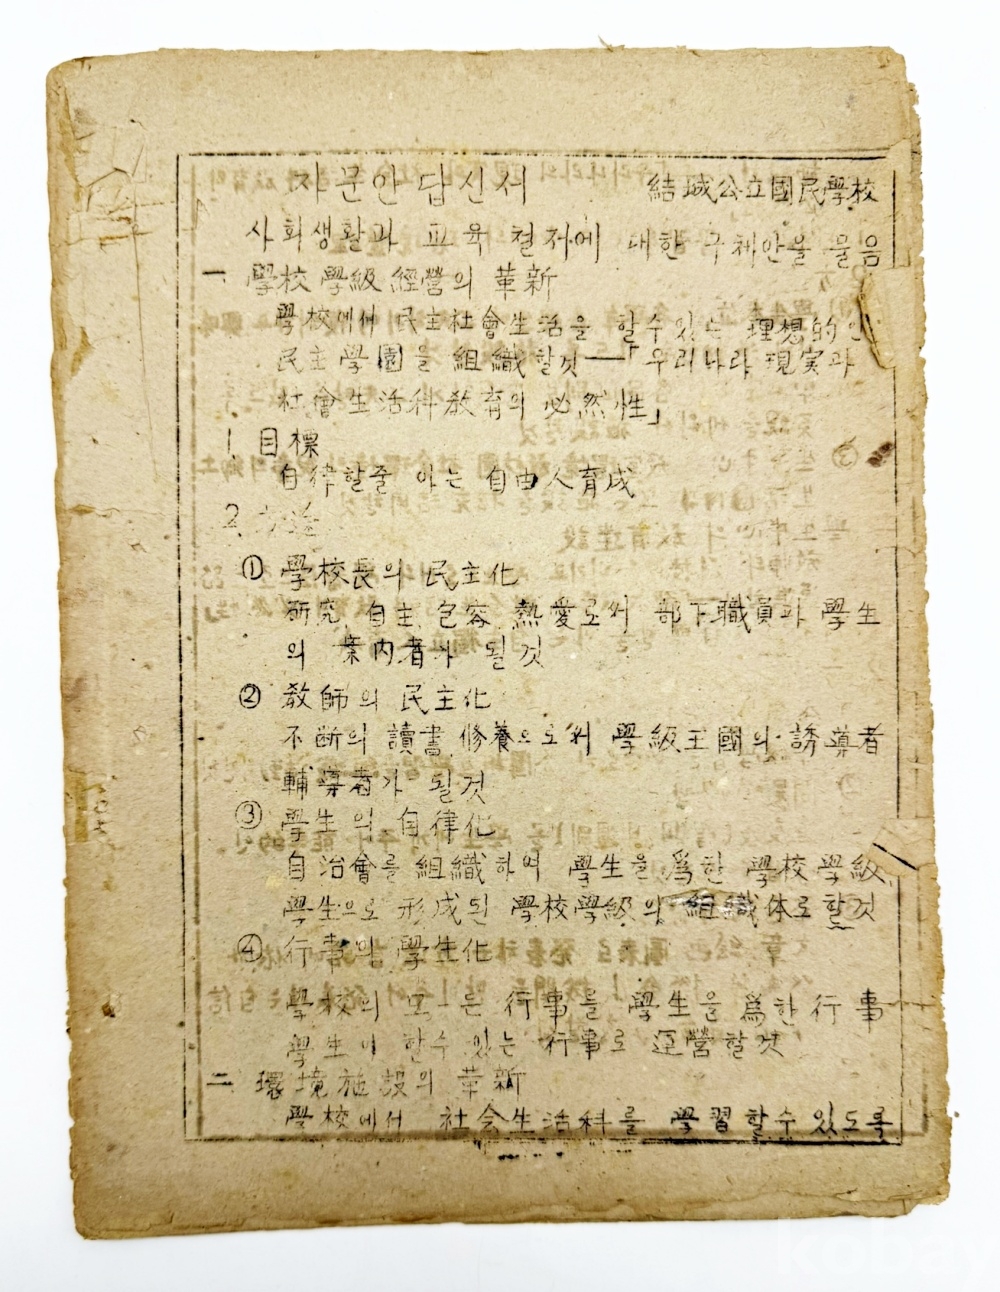 자문안답신서 結城公立國民學校
사회생활과 교육 철저에 대한 구체안을 물음
一 學校 學級 經營의 革新
學校에서 民主社會生活을 할수있는 理想的인
民主學園을 組織할것 ―「우리나라 現実과
社會生活科敎育의 必然性」
1. 目標
自律할줄 아는 自由人育成
2. 方途
① 學校長의 民主化
硏究, 自主, 包容, 熱愛로써 部下職員과 學生
의 案内者가 될것
② 敎師의 民主化
不断의 讀書, 修養으로써 學級王國의 誘導者
輔導者가 될것
③ 學生의 自律化
自治會를 組織하여 學生을 爲한 學校學級,
學生으로 形成된 學校學級의 組織体로할것
④ 行事의 學生化
學校의 모-든 行事를 學生을 爲한 行事
學生이 할수 있는 行事로 運營할것
二 環境施設의 革新
學校에서 社会生活科를 學習할수있도록
kobay